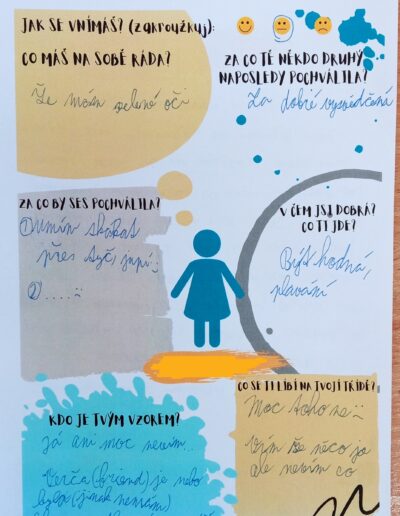 JAK SE VNÍMÁŠ? (zakroužkuj):
CO MÁŠ NA SOBĚ RÁDA?
Že mám zelené oči
ZA CO TĚ NĚKDO DRUHÝ
NAPOSLEDY POCHVÁLIL/A?
Za dobré vysvědčení
ZA CO BY SES POCHVÁLILA?
① umím skákat
přes tyč, jupí :)
② ....
V ČEM JSI DOBRÁ?
CO TI JDE?
Být hodná,
plavání
KDO JE TVÝM VZOREM?
Já ani moc nevím...
Verča (friend) je nebo
(jinak nemám)
CO SE TI LÍBÍ NA TVOJÍ TŘÍDĚ?
Moc toho ne
Vím že něco jo
ale nevím co